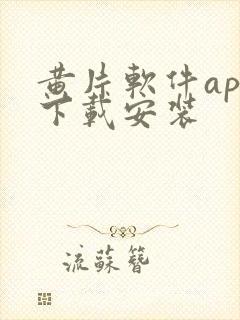 黄片軟件ap
下載安装
流蘇簪